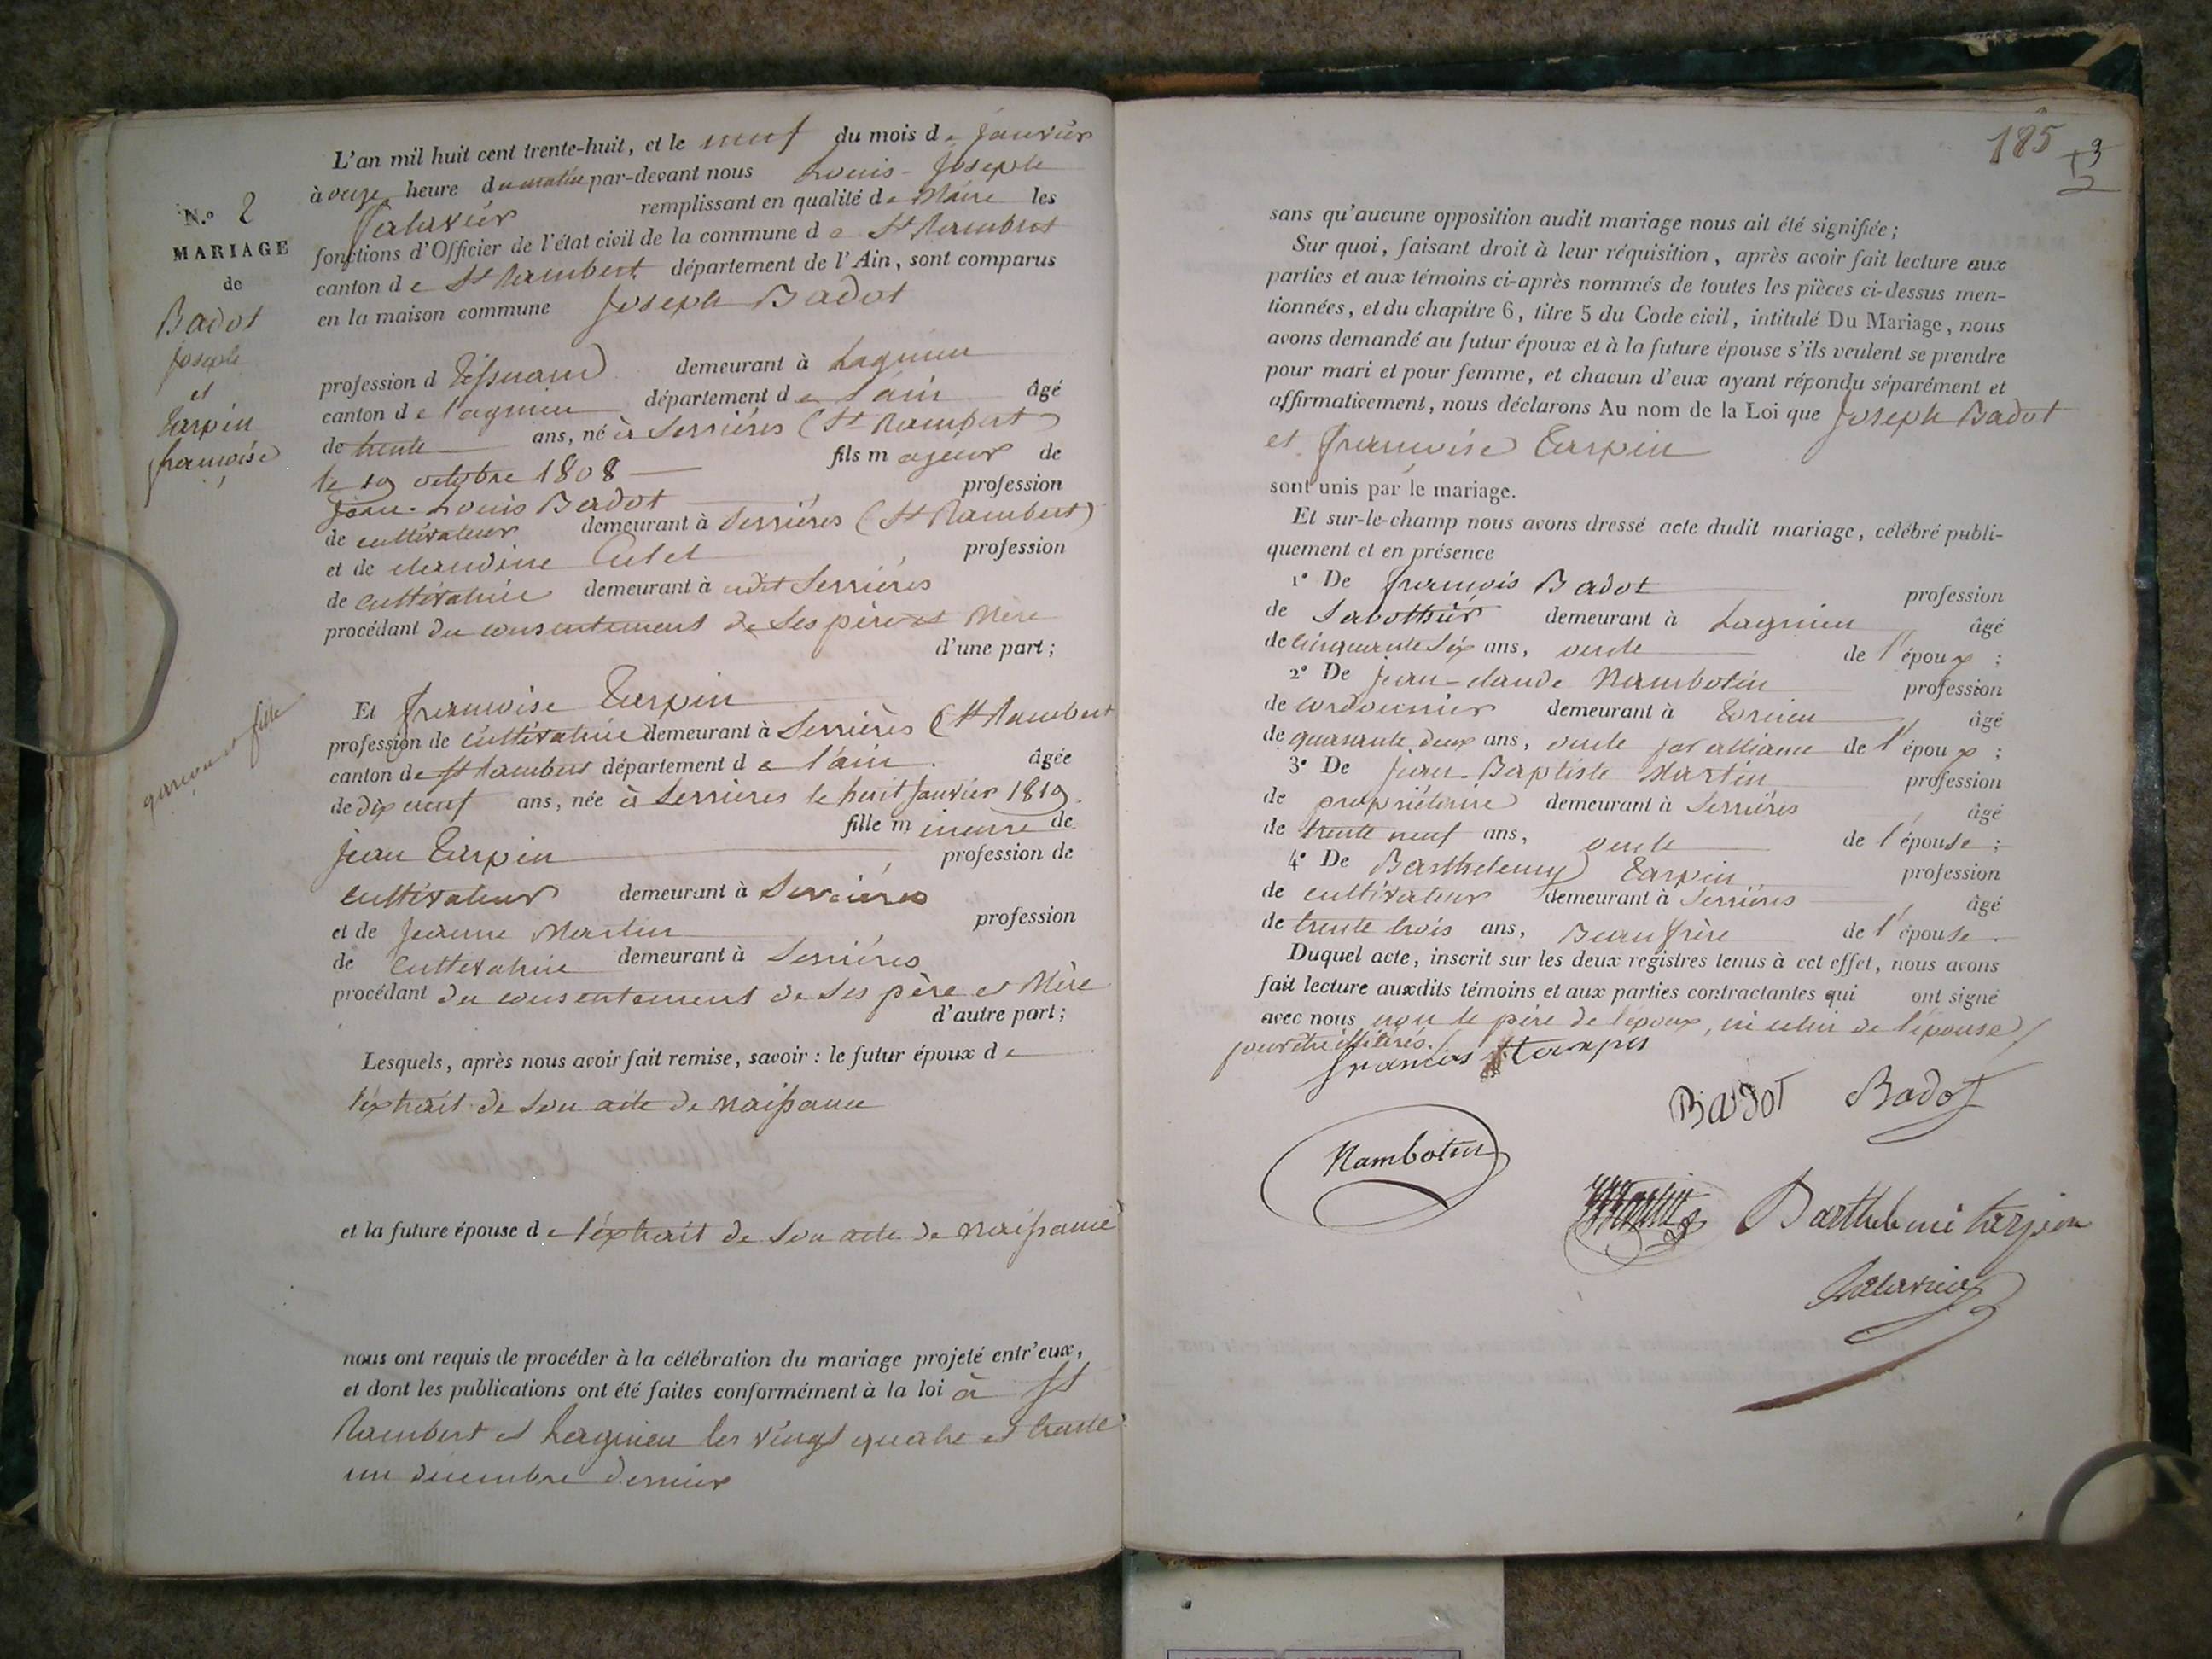 L'an mil huit cent trente-huit, et le neuf du mois de janvier
à onze heure du matin par-devant nous Louis-Joseph
remplissant en qualité de Maire les
fonctions d'Officier de l'état civil de la commune de St Rambert
canton de St Rambert département de l'Ain, sont comparus
en la maison commune Joseph Badot
N.º 2
MARIAGE
de
Badot
Joseph
et
Tarpin
françoise
profession d Tisserand demeurant à Lagnieu
canton de Lagnieu département de l'ain âgé
de trente ans, né à Serrières (St Rambert)
le 19 octobre 1808 fils majeur de
Jean-Louis Badot profession
de cultivateur demeurant à Serrières (St Rambert)
et de claudine profession
de cultivatrice demeurant à udit Serrières
procédant du consentement de ses père et Mère
d'une part;
garçon et fille
Et françoise Tarpin
profession de cultivatrice demeurant à Serrières (St Rambert
canton de St Rambert département de l'ain. âgée
de dix neuf ans, née à Serrières le huit Janvier 1819.
fille mineure de
jean Tarpin profession de
cultivateur demeurant à Serrières
et de Jeanne Martin profession
de cultivatrice demeurant à Serrières
procédant du consentement de ses père et Mère
d'autre part;
Lesquels, après nous avoir fait remise, savoir : le futur époux de
l'extrait de son acte de naissance
et la future épouse de l'extrait de son acte de naissance
nous ont requis de procéder à la célébration du mariage projeté entr'eux,
et dont les publications ont été faites conformément à la loi à St
Rambert et Lagnieu les vingt quatre et trente
un décembre dernier
185
sans qu'aucune opposition audit mariage nous ait été signifiée;
Sur quoi, faisant droit à leur réquisition, après avoir fait lecture aux
parties et aux témoins ci-après nommés de toutes les pièces ci-dessus men-
tionnées, et du chapitre 6, titre 5 du Code civil, intitulé Du Mariage, nous
avons demandé au futur époux et à la future épouse s'ils veulent se prendre
pour mari et pour femme, et chacun d'eux ayant répondu séparément et
affirmativement, nous déclarons Au nom de la Loi que Joseph Badot
et françoise Tarpin
sont unis par le mariage.
Et sur-le-champ nous avons dressé acte dudit mariage, célébré publi-
quement et en présence
1º De françois Badot profession
de Sabottier demeurant à Lagnieu âgé
de cinquante six ans, oncle de l'époux;
2º De Jean-claude Nambotin profession
de cordonnier demeurant à Torcieu âgé
de quarante deux ans, oncle par alliance de l'époux;
3º De Jean-Baptiste Martin profession
de propriétaire demeurant à Serrières âgé
de trente neuf ans, oncle de l'épouse;
4º De Barthelemy Tarpin profession
de cultivateur demeurant à Serrières âgé
de trente trois ans, Beau frère de l'épouse.
Duquel acte, inscrit sur les deux registres tenus à cet effet, nous avons
fait lecture auxdits témoins et aux parties contractantes qui ont signé
avec nous non le père de l'époux, ni celui de l'épouse
pour être illitérés.
BaDOT Badot
Nambotin
Barthelemi